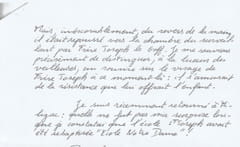 Mais, inlassablement, du revers de la main,
il était repoussé vers la chambre du surveil-
lant par Frère Joseph le Goff. Je me souviens
précisément de distinguer, à la lueur des
veilleuses, un sourire sur le visage de
Frère Joseph à ce moment là : il s'amusait
de la résistance que lui offrait l'enfant.
Je suis récemment retourné à
: quelle ne fut pas ma surprise lors-
que je constatai que l'école avait
été rebaptisée "Ecole Notre Dame"